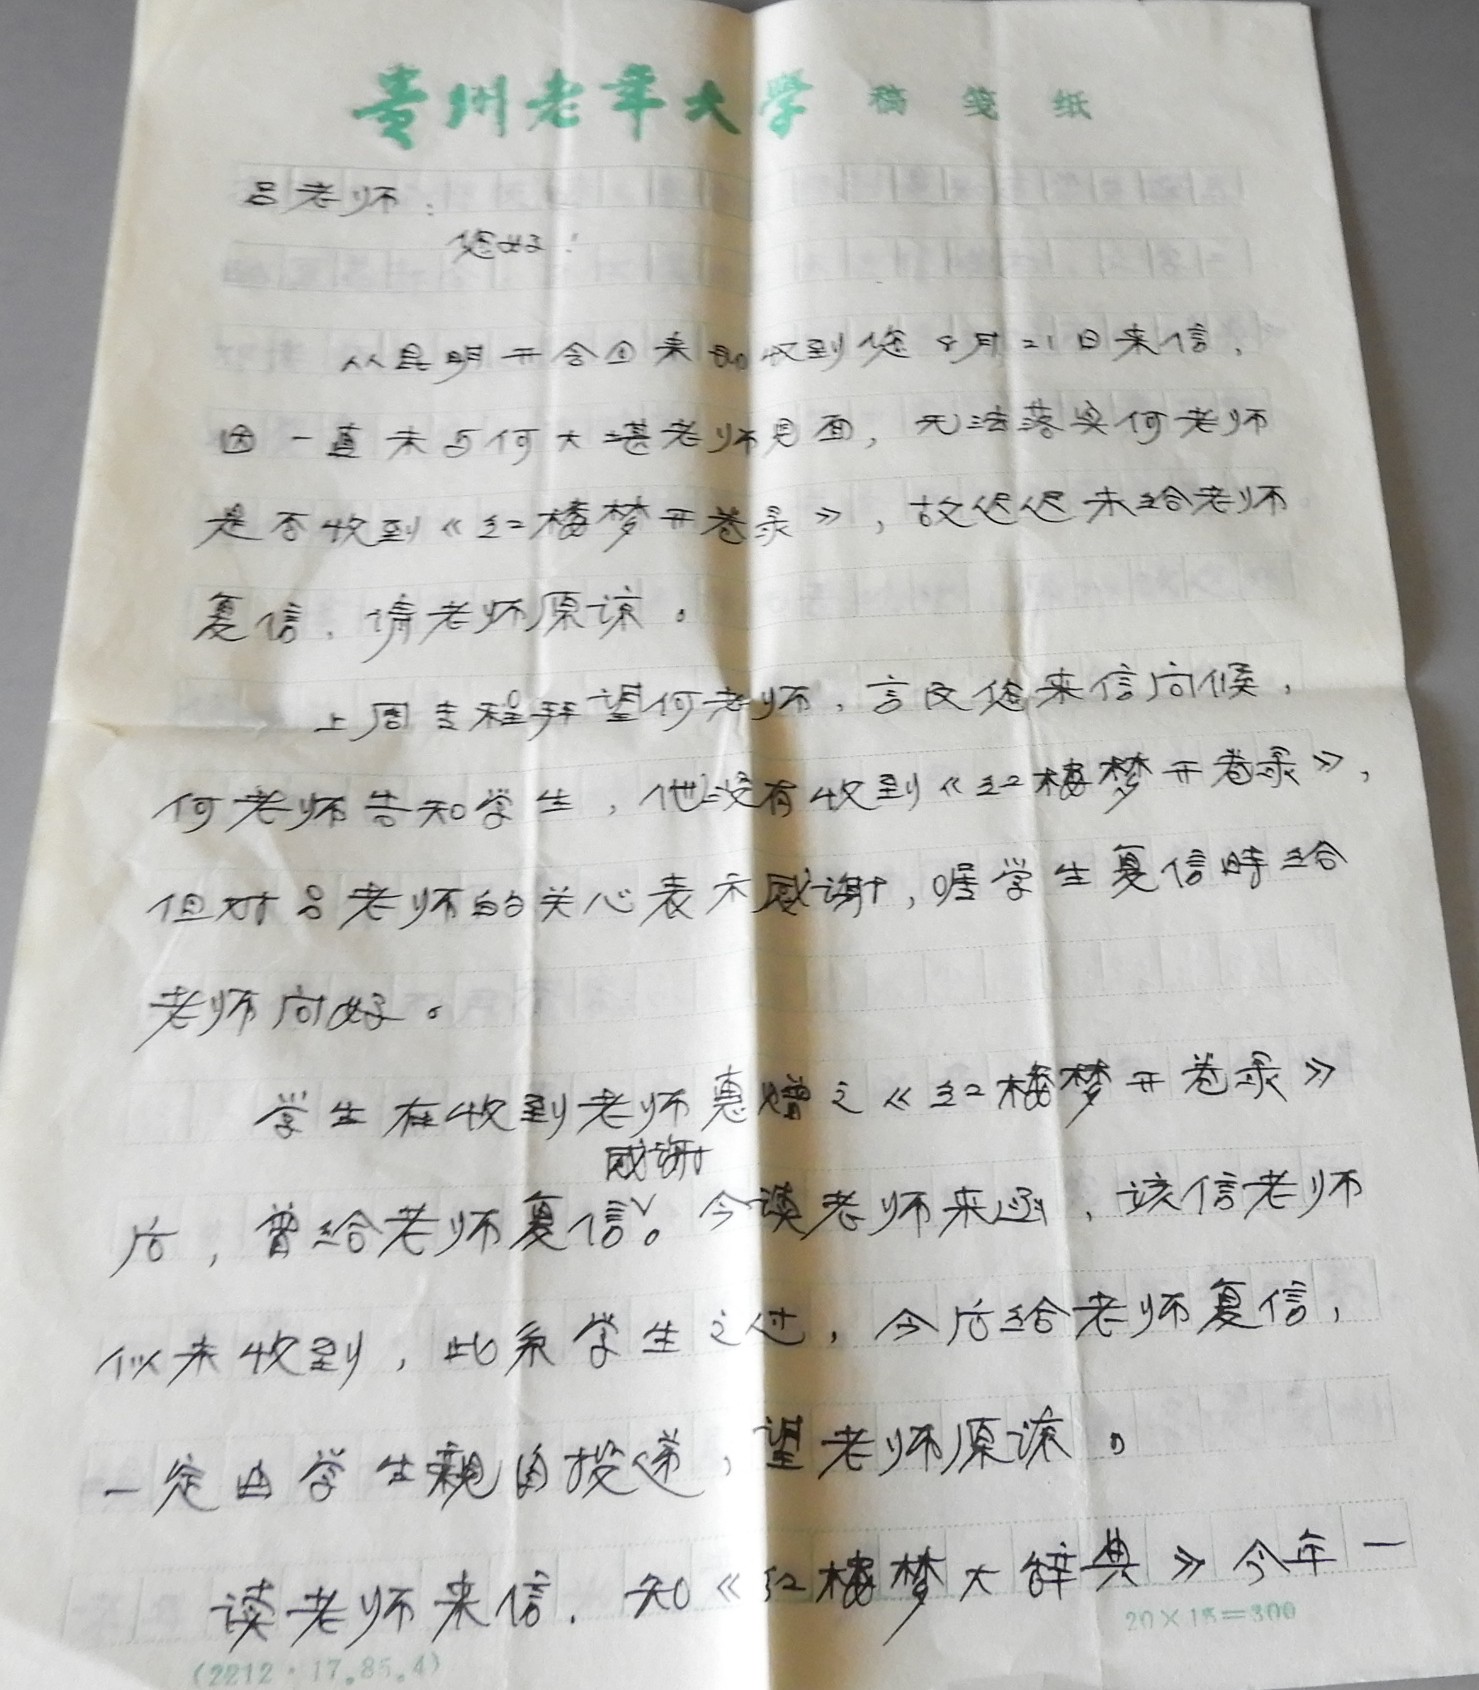 贵州老年大学 稿笺纸
吕老师：
您好！
从昆明开会回来即收到您8月21日来信，
因一直未与何大堪老师见面，无法落实何老师
是否收到《红楼梦开卷录》，故迟迟未给老师
复信，请老师原谅。
上周专程拜望何老师，言及您来信问候，
何老师告知学生，他没有收到《红楼梦开卷录》，
但对吕老师的关心表示感谢，嘱学生复信时给
老师问好。
学生在收到老师惠赠之《红楼梦开卷录》
后，曾给老师复信感谢。今读老师来函，该信老师
似未收到，此系学生之过，今后给老师复信，
一定由学生亲自投递，望老师原谅。
读老师来信，知《红楼梦大辞典》今年一
20×15=300
(2212·17.85.4)